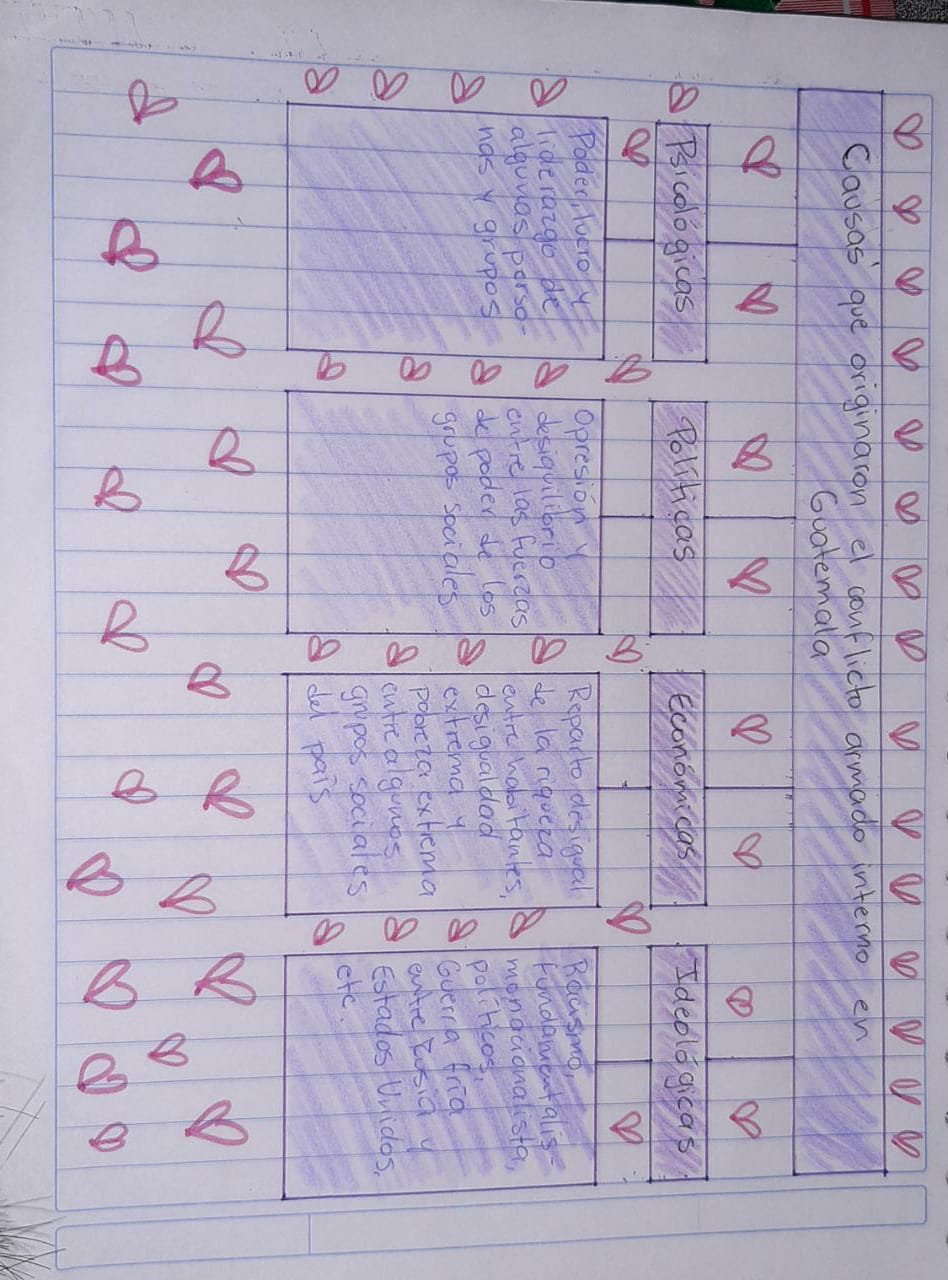 Causas que originaron el conflicto armado interno en
Guatemala
Psicológicas
Poder, lucro y
liderazgo de
algunas perso-
nas y grupos
Políticas
Opresión y
desiquilibrio
entre las fuerzas
de poder de los
grupos sociales
Económicas
Reparto desigual
de la riqueza
entre habitantes,
desigualdad
extrema y
pobreza extrema
entre algunos
grupos sociales
del país
Ideológicas
Racismo,
fundamentalis-
monacionalista,
políticos,
Guerra fría
entre Rusia y
Estados Unidos,
etc.